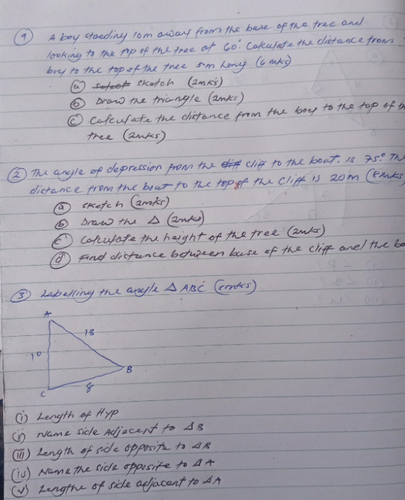 ① A boy standing 10m away from the base of the tree and
looking to the top of the tree at 60° Calculate the distance from
boy to the top of the tree 5m long (6mks)
ⓐ sketch (2mks)
ⓑ Draw the triangle (2mks)
ⓒ Calculate the distance from the boy to the top of th
tree (2mks)
② The angle of depression from the cliff to the boat. is 75° Th
distance from the boat to the top of the Cliff is 20m (8mks)
ⓐ sketch (2mks)
ⓑ Draw the Δ (2mks)
ⓒ Calculate the height of the tree (2mks)
ⓓ Find distance between base of the cliff and the bo
③ Labelling the angle Δ ABC (5mks)
A
18
10
B
C
8
(i) Length of Hyp
(ii) Name side Adjacent to ΔB
(iii) Length of side opposite to ΔB
(iv) Name the side opposite to ΔA
(v) Lengthe of side adjacent to ΔA